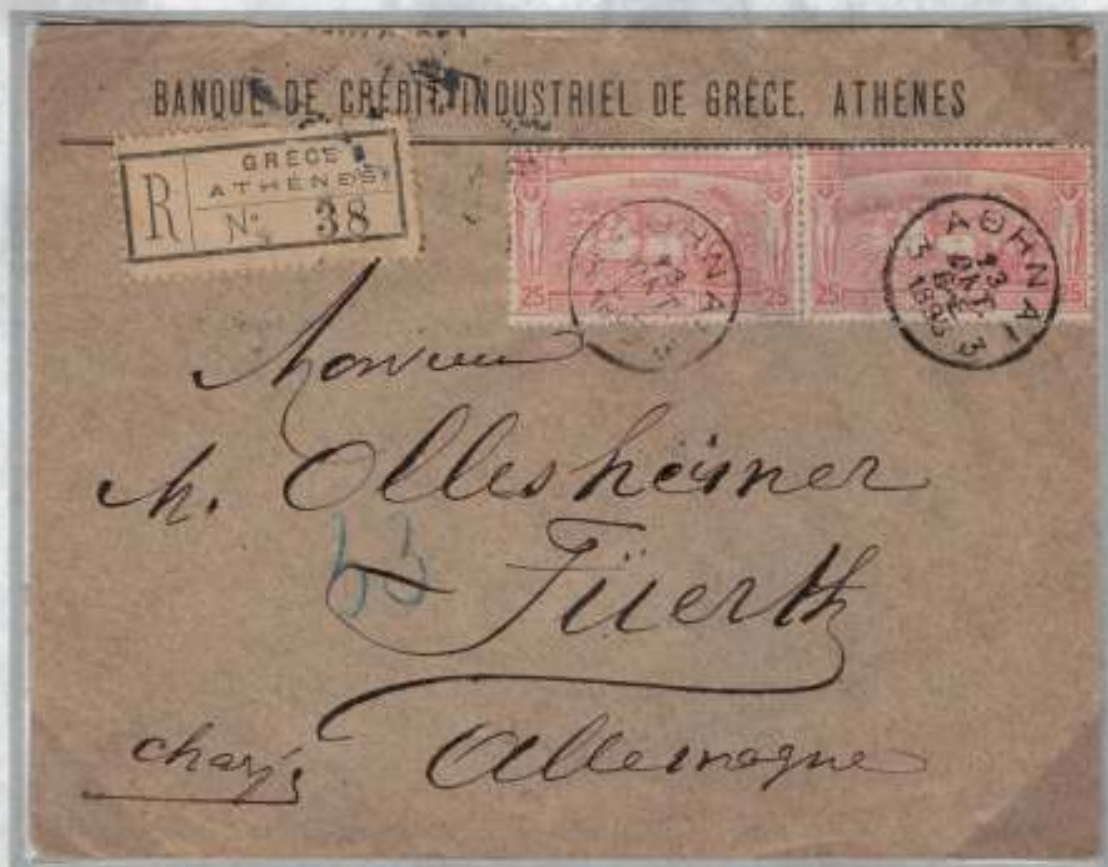 BANQUE DE CRÉDIT INDUSTRIEL DE GRÈCE. ATHÈNES
R
GRECE
ATHÈNES
Nº 38
25 25
25 25
ΑΘΗΝΑΙ 3
ΑΘΗΝΑΙ 3
Monsieur
M. Ollesheimer
Füerth
Allemagne
chargé